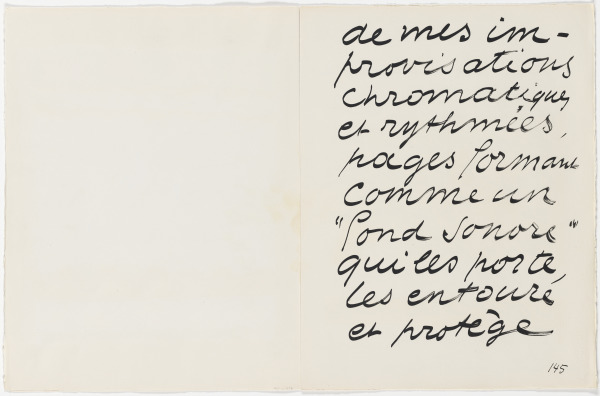 de mes im-
provisations
chromatiques
et rythmées,
pages formant
comme un
"fond sonore"
qui les porte,
les entoure
et protège
145